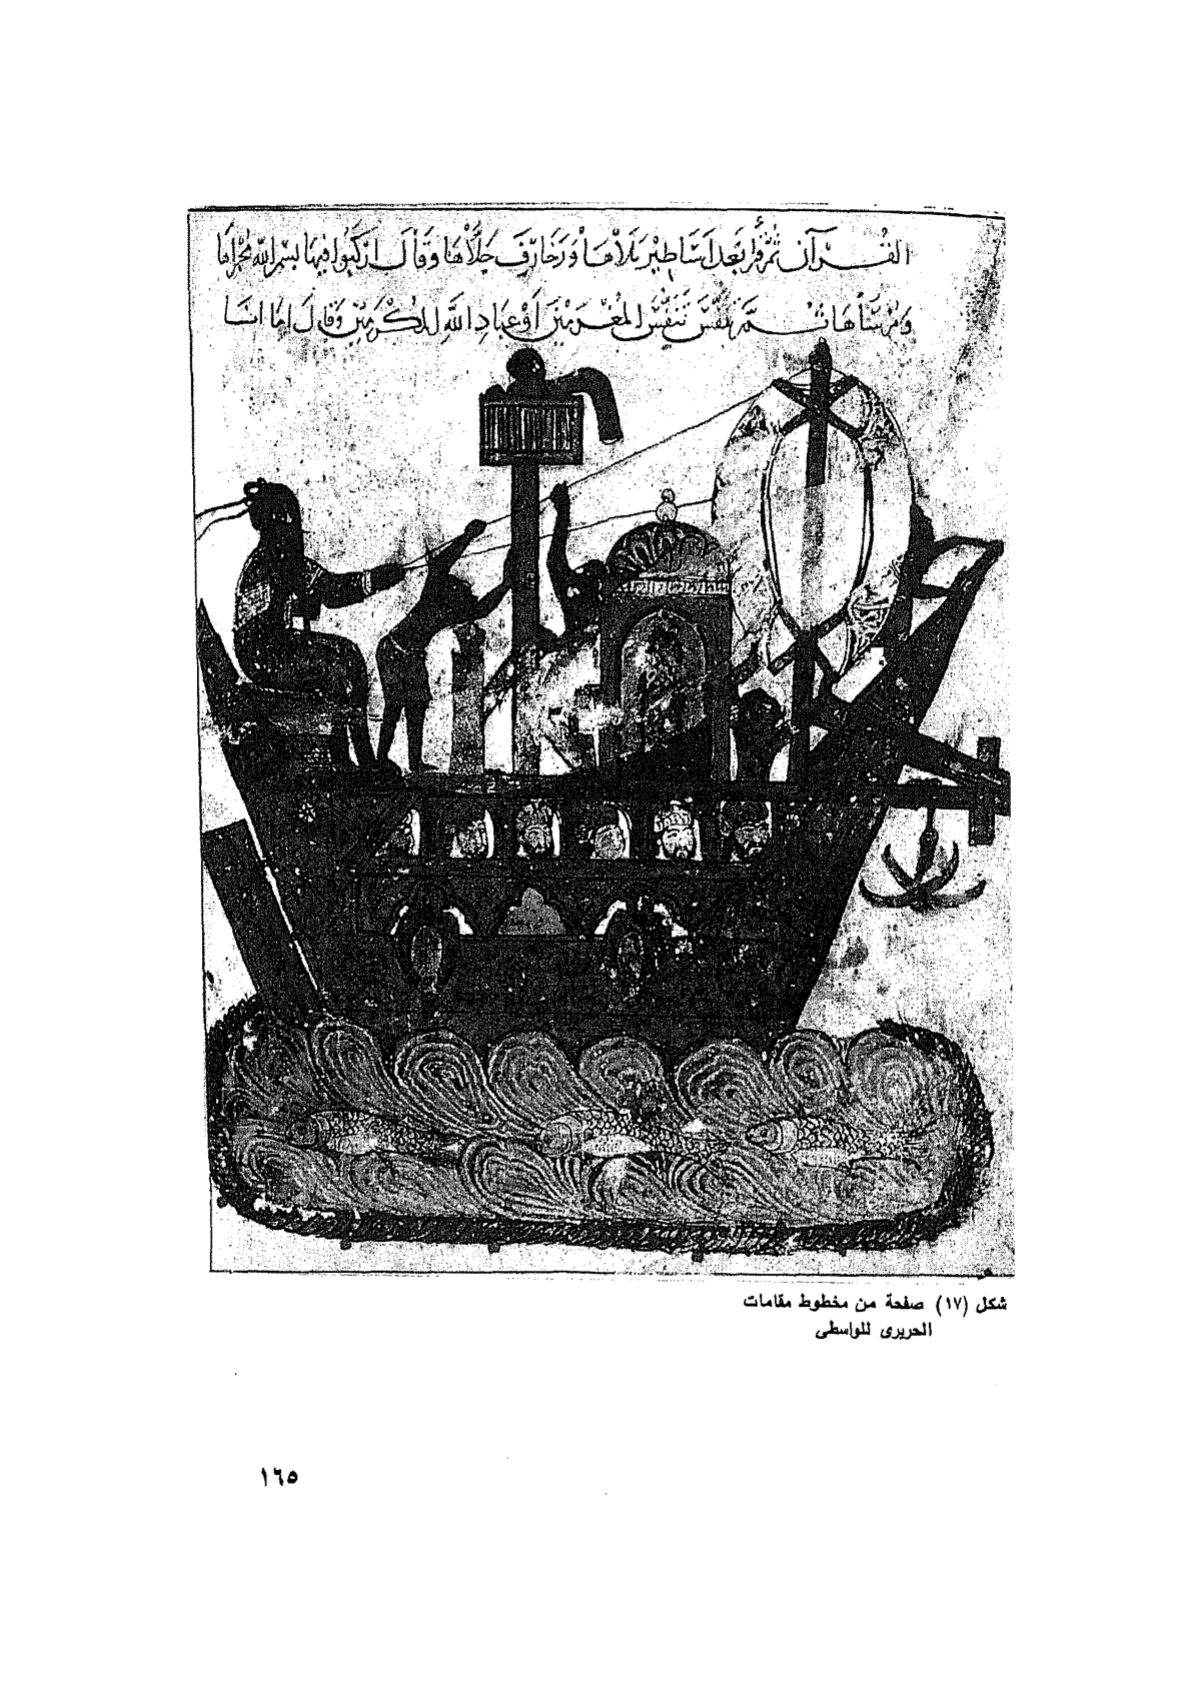 القُرآن ثُمَّ قرأ بَعدَ اسَاطِيرَ تَلاَهَا وَزَخَارِفَ جَلاَّهَا وَقَالَ ارْكَبُوا فِيهَا بسْمِ اللهِ مُجْرَاهَا
وَمُرْسَاهَا ثُمَّ تَنَفَّسَ تَنَفُّسَ المُغْرَمِيْنَ اَوْ عِبَادِ اللهِ المُكْرَمِيْنَ وَقَالَ امَّا انَا
شكل (١٧) صفحة من مخطوط مقامات
الحريرى للواسطى
١٦٥